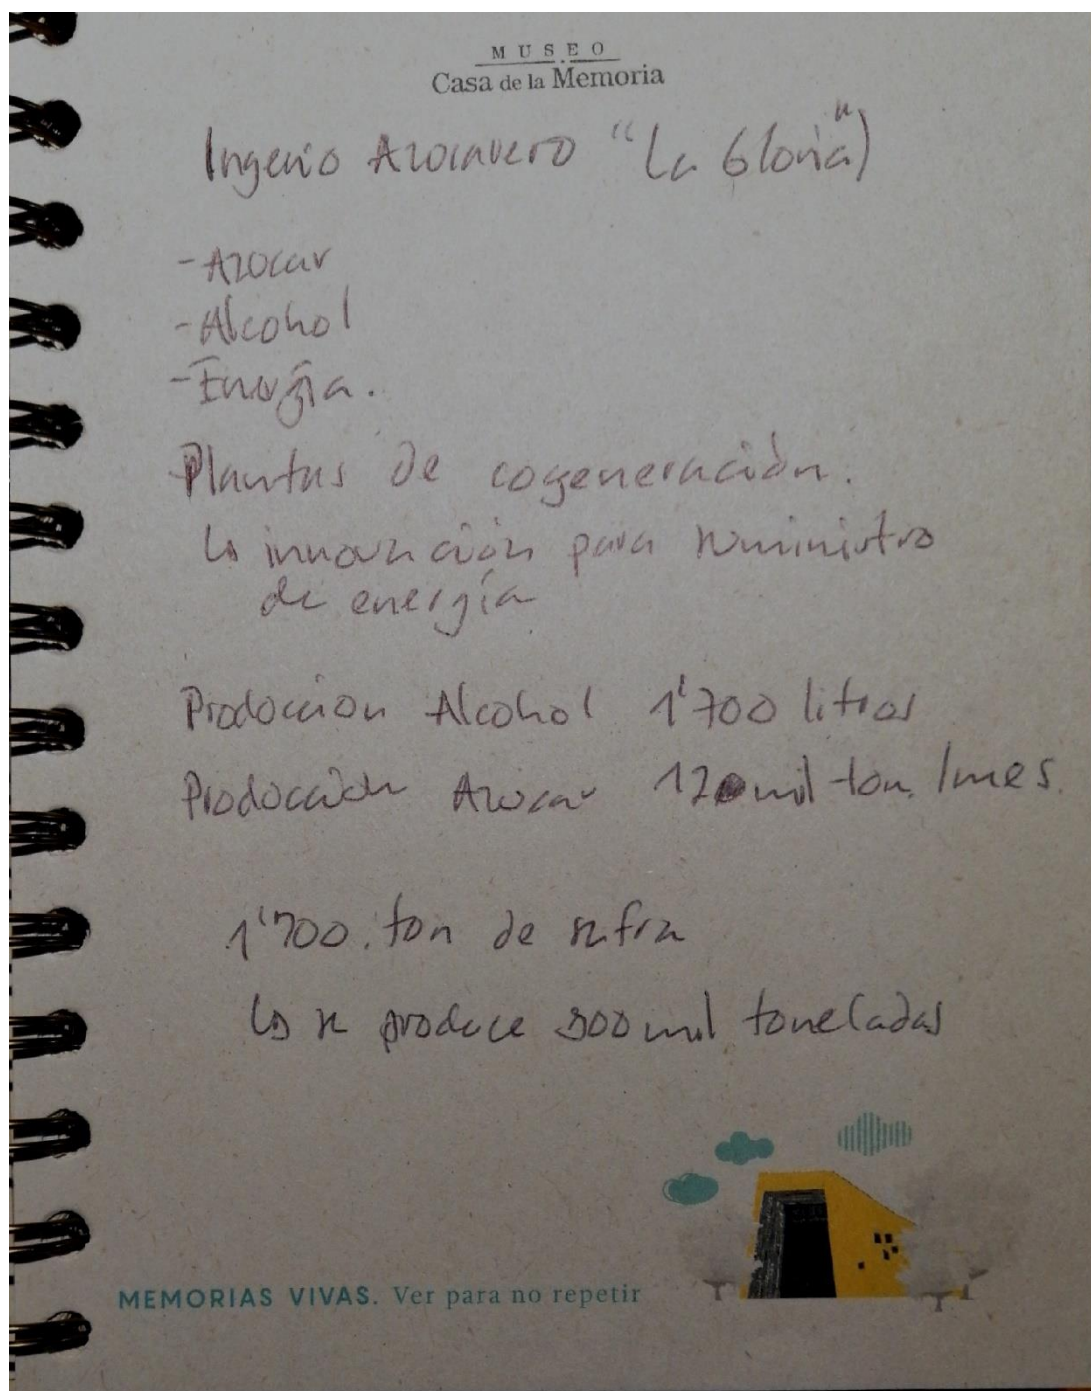 MUSEO
Casa de la Memoria
Ingenio Azocarero "La Gloria")
-Azocar
-Alcohol
-Energía.
Plantas de cogeneración.
↳ innovación para suministro
de energía
Prodoccion Alcohol 1'700 litros
Prodocción Azocar 120 mil ton. /mes.
1'700. ton de safra
↳ se produce 300 mil toneladas
MEMORIAS VIVAS. Ver para no repetir